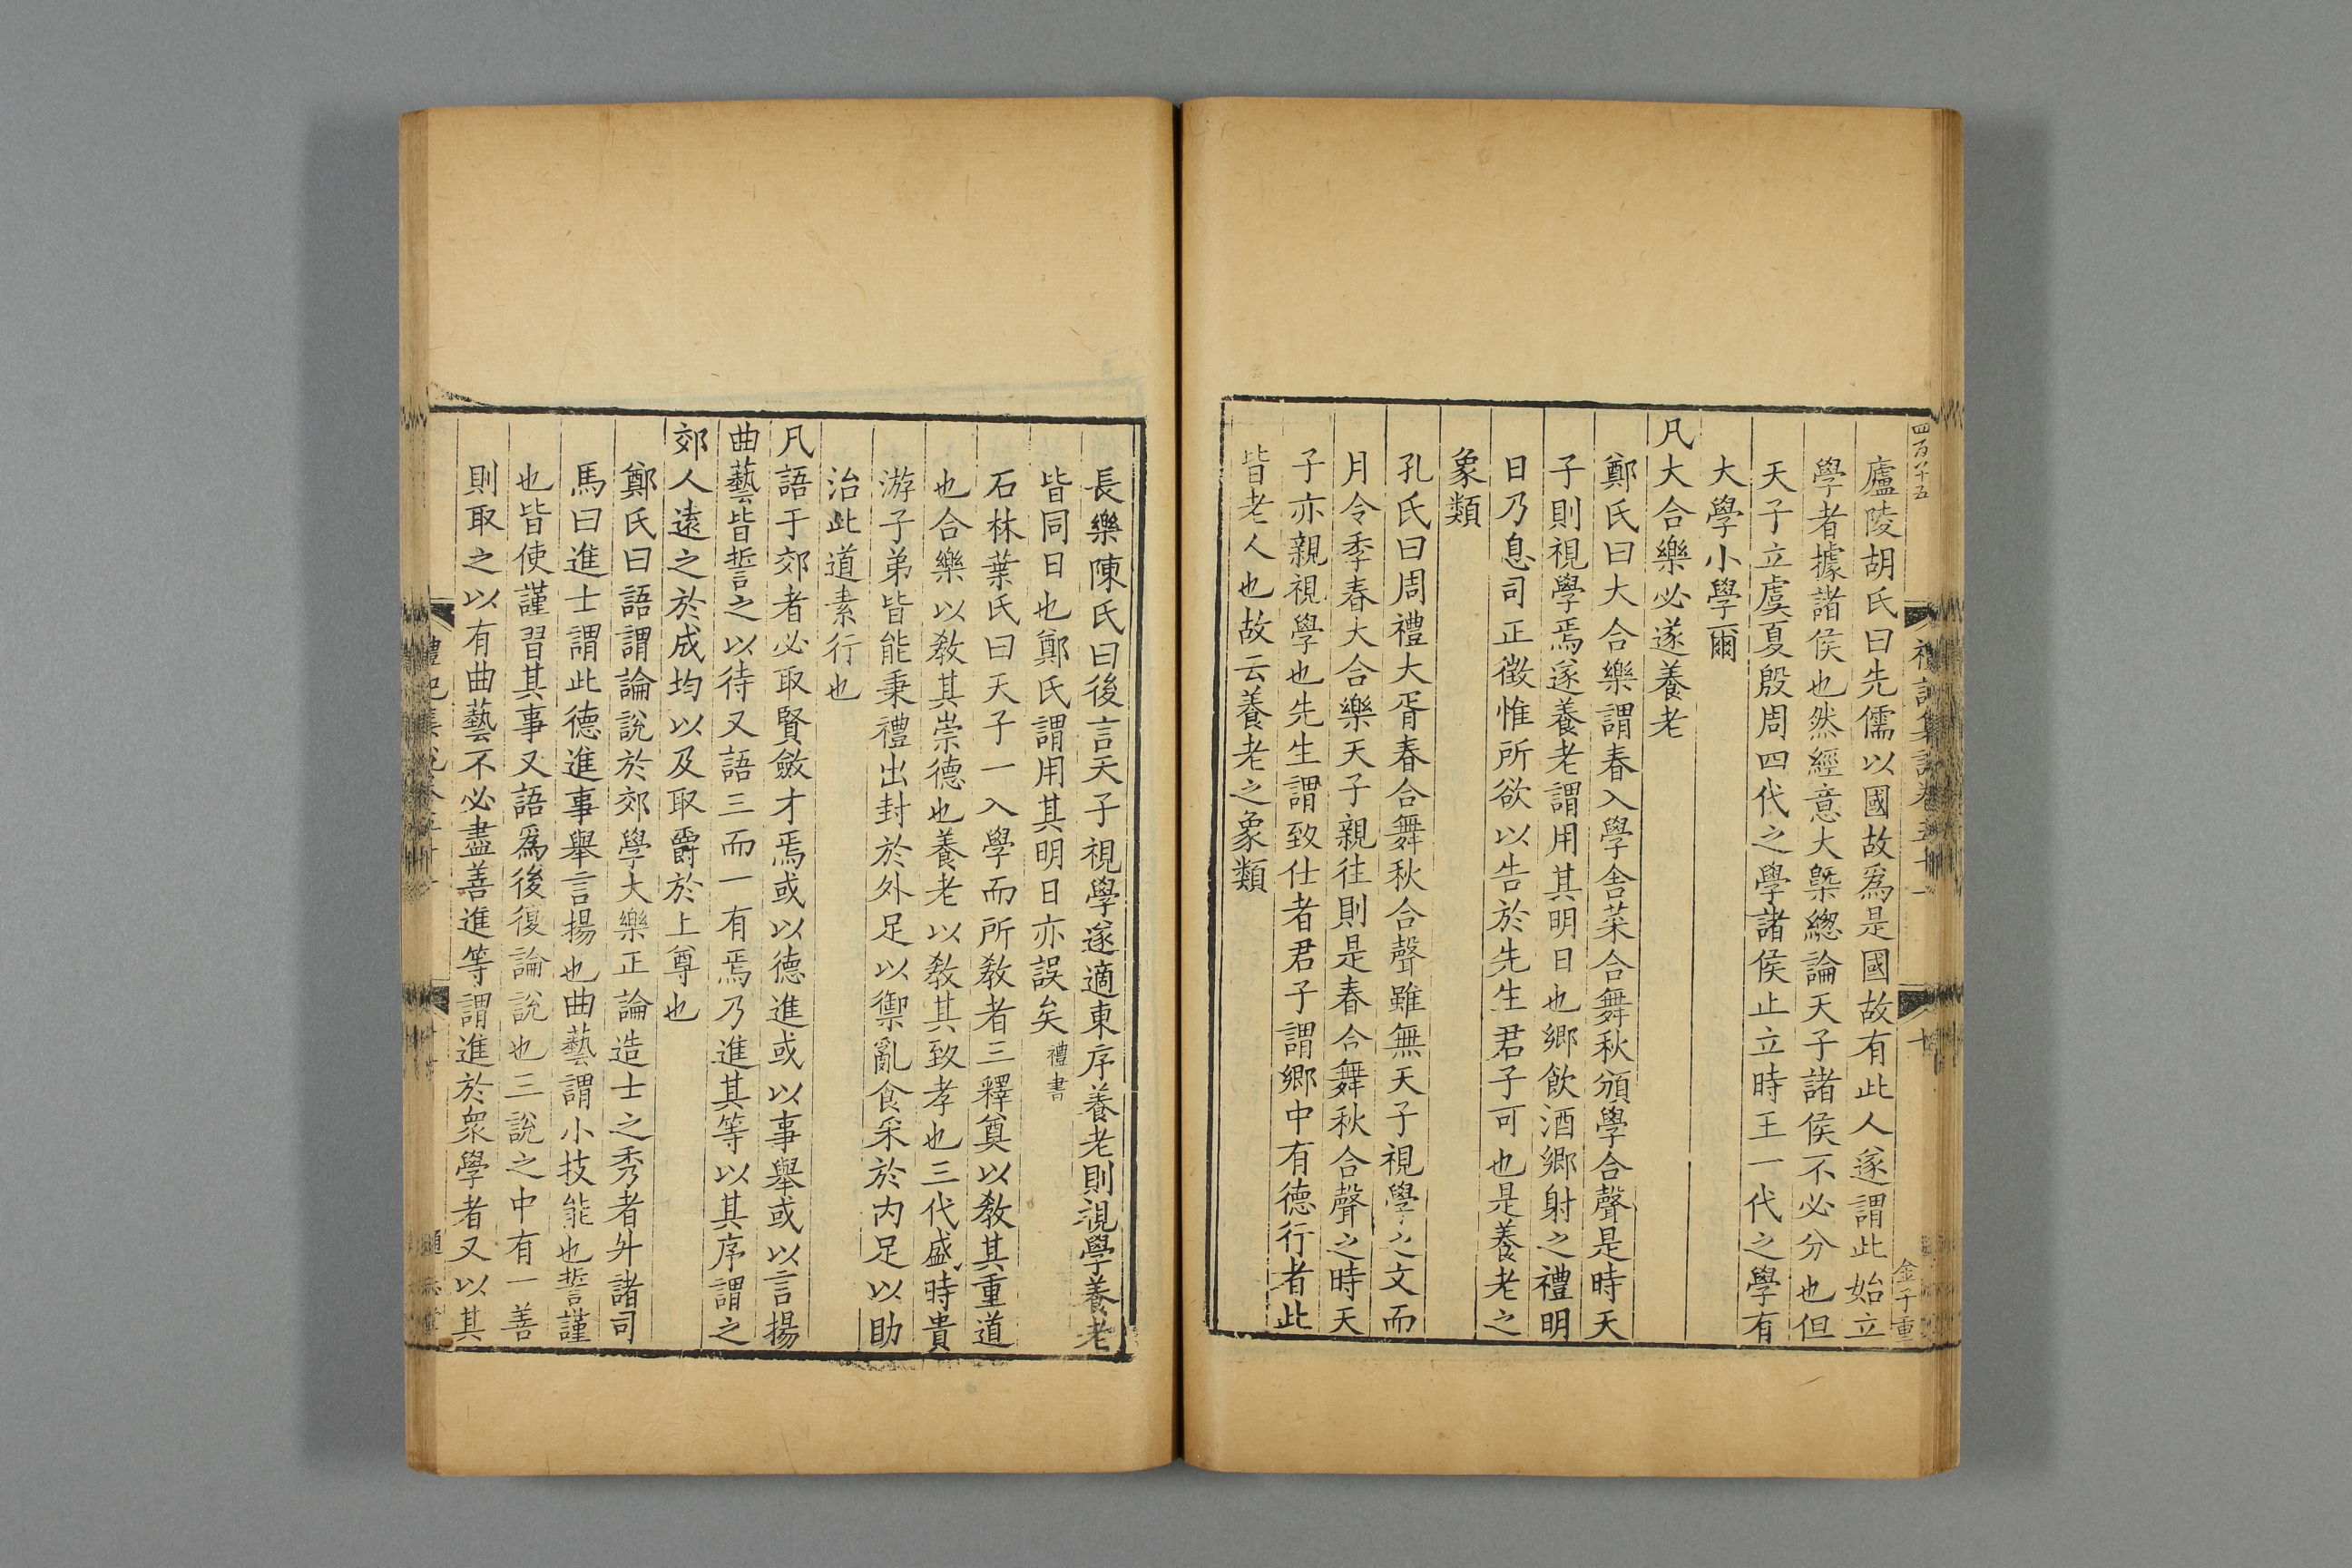 四百八十五
禮記集說卷五十一
十
金子重
廬陵胡氏曰先儒以國故爲是國故有此人遂謂此始立
學者據諸侯也然經意大槩總論天子諸侯不必分也但
天子立虞夏殷周四代之學諸侯止立時王一代之學有
大學小學爾
凡大合樂必遂養老
鄭氏曰大合樂謂春入學舍菜合舞秋頒學合聲是時天
子則視學焉遂養老謂用其明日也鄉飲酒鄉射之禮明
日乃息司正徵惟所欲以告於先生君子可也是養老之
象類
孔氏曰周禮大胥春合舞秋合聲雖無天子視學之文而
月令季春大合樂天子親往則是春合舞秋合聲之時天
子亦親視學也先生謂致仕者君子謂鄉中有德行者此
皆老人也故云養老之象類
長樂陳氏曰後言天子視學遂適東序養老則視學養老
皆同日也鄭氏謂用其明日亦誤矣禮書
石林葉氏曰天子一入學而所敎者三釋奠以敎其重道
也合樂以敎其崇德也養老以敎其致孝也三代盛時貴
游子弟皆能秉禮出封於外足以禦亂食采於内足以助
治此道素行也
凡語于郊者必取賢斂才焉或以德進或以事舉或以言揚
曲藝皆誓之以待又語三而一有焉乃進其等以其序謂之
郊人遠之於成均以及取爵於上尊也
鄭氏曰語謂論說於郊學大樂正論造士之秀者升諸司
馬曰進士謂此德進事舉言揚也曲藝謂小技能也誓謹
也皆使謹習其事又語爲後復論說也三說之中有一善
則取之以有曲藝不必盡善進等謂進於衆學者又以其